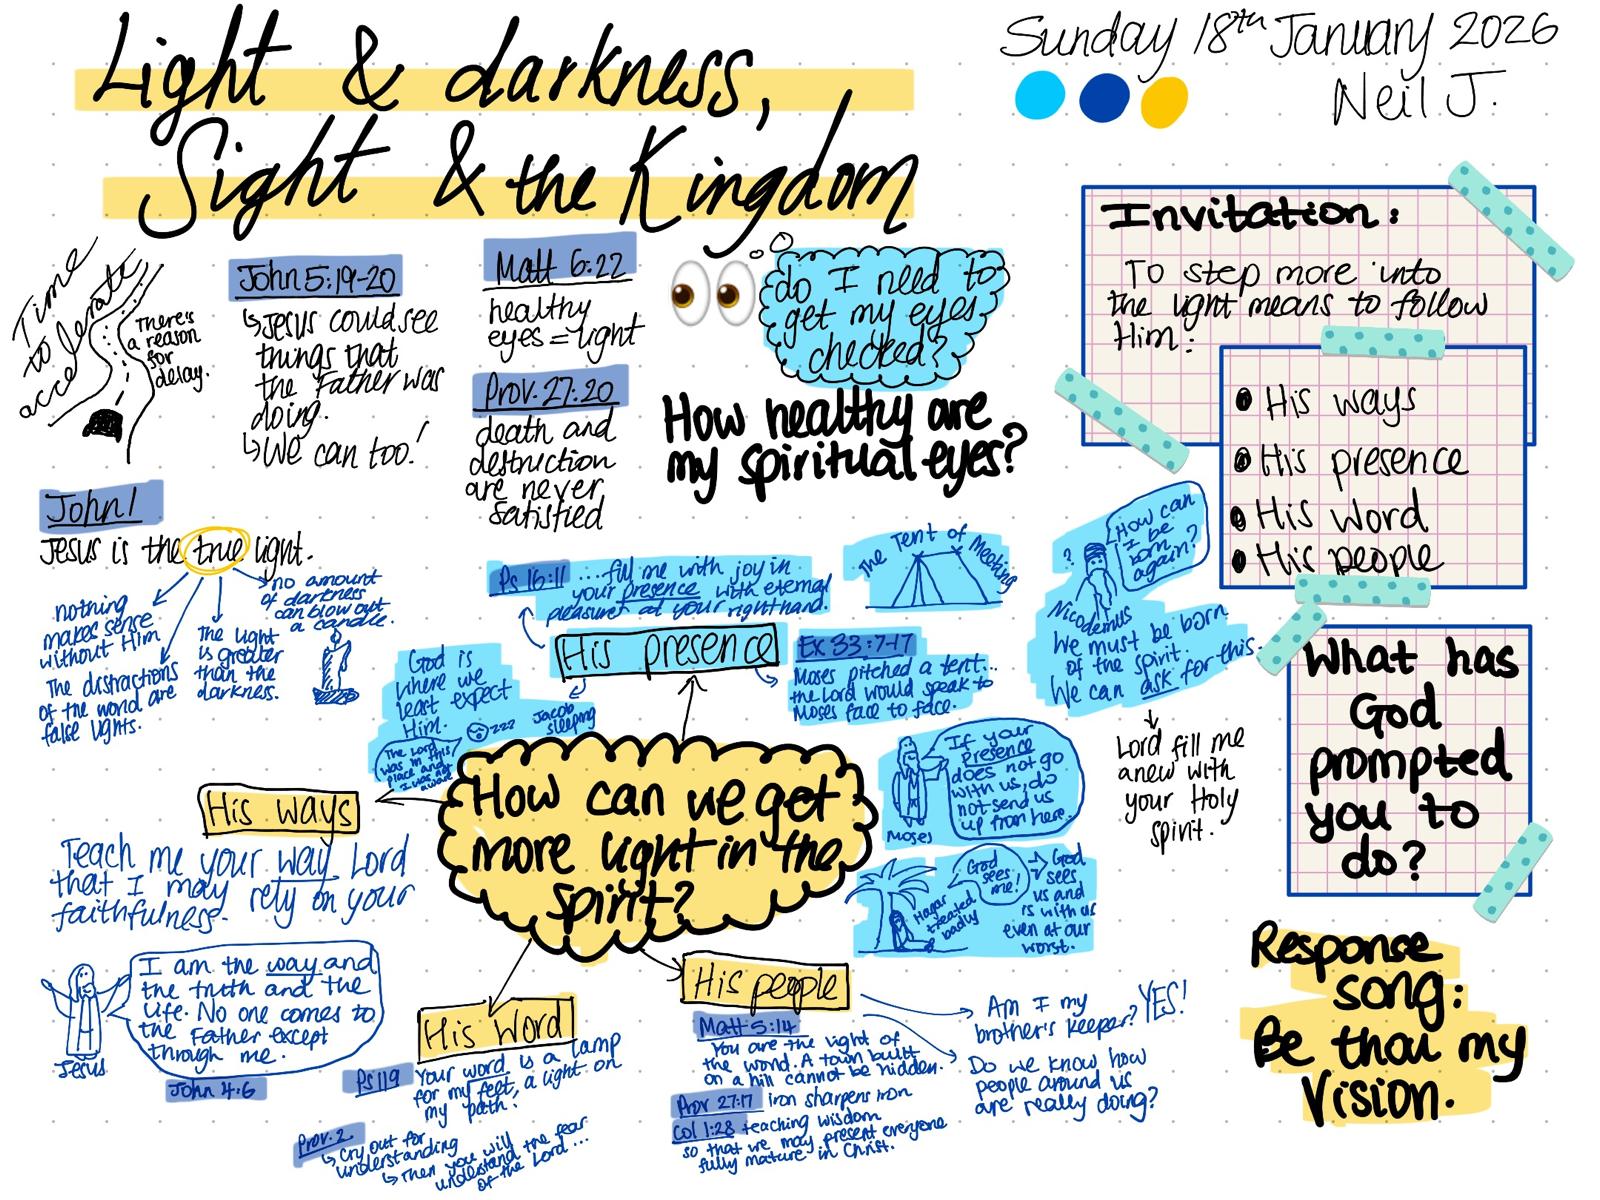 Light & darkness,
Sight & the Kingdom
Sunday 18th January 2026
Neil J.
Time
to
accelerate
There's
a reason
for
delay.
John 5:19-20
↳Jesus could see
things that
the Father was
doing.
↳We can too!
Matt 6:22
healthy
eyes = light
Prov. 27:20
death and
destruction
are never
satisfied
do I need to
get my eyes
checked?
How healthy are
my spiritual eyes?
Invitation:
To step more into
the light means to follow
Him:
• His ways
• His presence
• His word
• His people
John 1
Jesus is the true light.
nothing
makes sense
without Him
The distractions
of the world are
false lights.
The light
is greater
than the
darkness.
no amount
of darkness
can blow out
a candle.
Ps 16:11
...fill me with joy in
your presence with eternal
pleasure at your right hand.
The Tent of Meeting
His presence
Ex 33:7-17
Moses pitched a tent...
the Lord would speak to
Moses face to face.
God is
where we
least expect
Him.
zzz
Jacob
sleeping
The Lord
was in this
place and
I was not
aware
?
How can
I be
born
again?
Nicodemus
We must be born
of the spirit.
We can ask for this.
Lord fill me
anew with
your Holy
spirit.
If your
presence
does not go
with us, do
not send us
up from here.
Moses
God
sees
me!
Hagar
treated
badly
→ God
sees
us and
is with us
even at our
worst.
How can we get
more light in the
spirit?
His ways
Teach me your way Lord
that I may rely on your
faithfulness.
I am the way and
the truth and the
life. No one comes to
the Father except
through me.
Jesus
John 4:6
His Word
Ps 119
Your word is a lamp
for my feet, a light on
my path.
Prov. 2
↳ Cry out for
understanding
↳ Then you will
understand the fear
of the Lord...
His people
Matt 5:14
You are the light of
the world. A town built
on a hill cannot be hidden.
Prov 27:17 iron sharpens iron
Col 1:28 teaching wisdom
so that we may present everyone
fully mature in Christ.
Am I my
brother's keeper? YES!
Do we know how
people around us
are really doing?
What has
God
prompted
you to
do?
Response
song:
Be thou my
Vision.